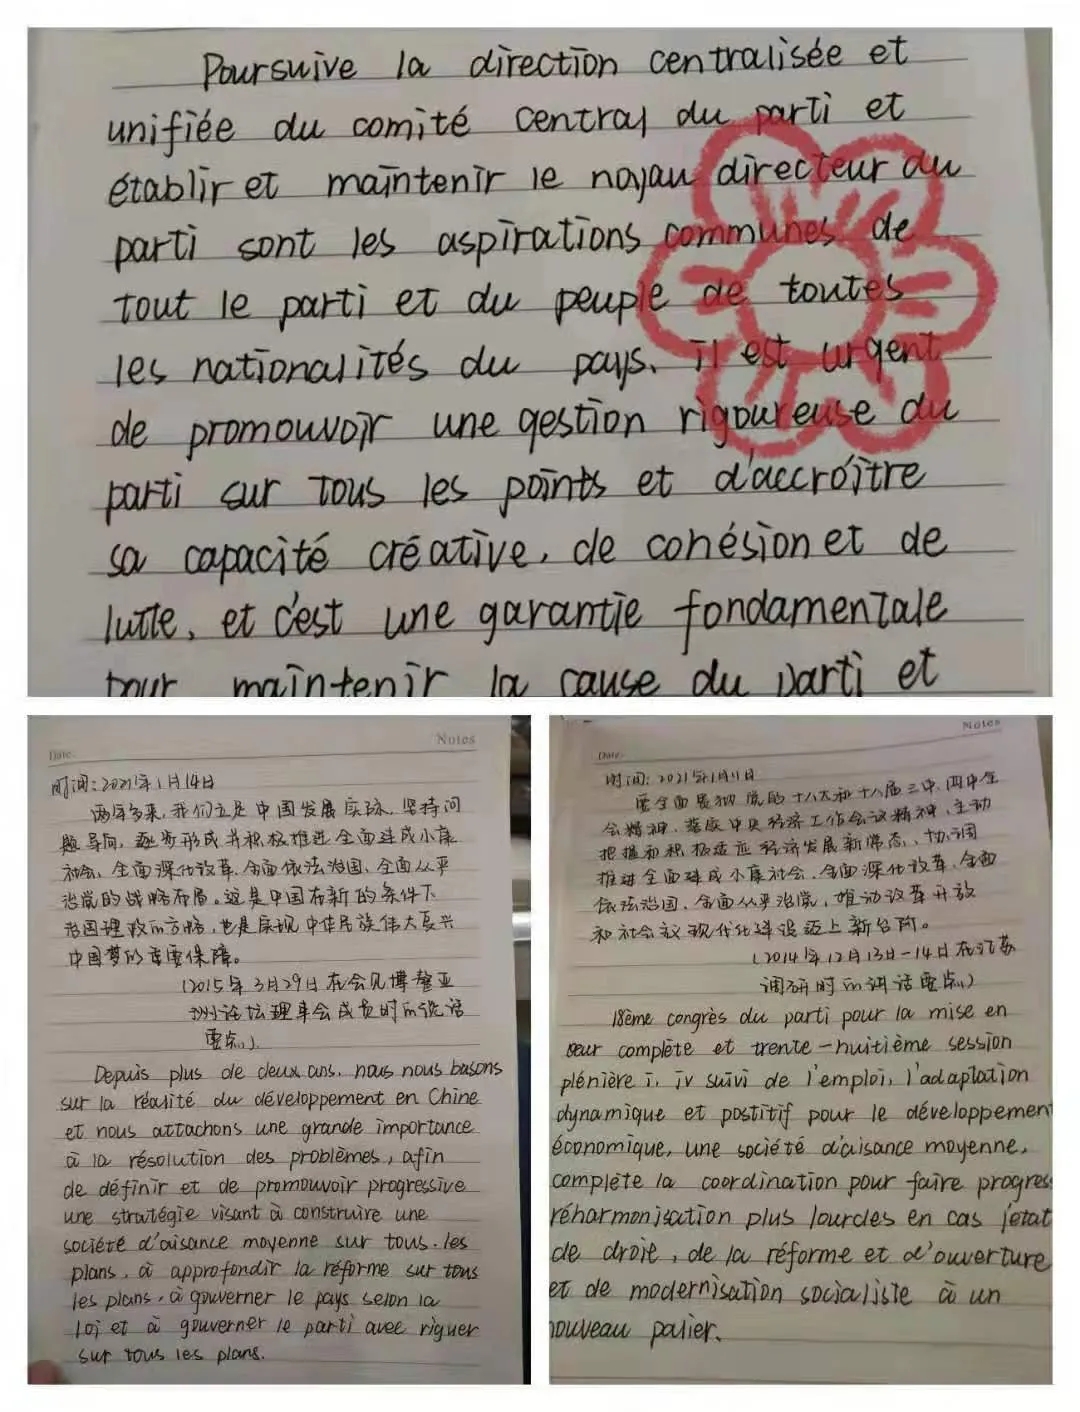 Poursuive la direction centralisée et
unifiée du comité central du parti et
établir et maintenir le noyau directeur du
parti sont les aspirations communes de
tout le parti et du peuple de toutes
les nationalités du pays. il est urgent
de promouvoir une gestion rigoureuse du
parti sur tous les points et d'accroître
sa capacité créative, de cohésion et de
lutte, et c'est une garantie fondamentale
pour maintenir la cause du parti et
Date
Notes
时间:2021年1月14日
两年多来,我们立足中国发展实际,坚持问
题导向,逐步形成并积极推进全面建成小康
社会、全面深化改革、全面依法治国、全面从严
治党的战略布局。这是中国在新的条件下
治国理政的方略,也是实现中华民族伟大复兴
中国梦的重要保障。
(2015年3月29日在会见博鳌亚
洲论坛理事会成员时的谈话
要点)
Depuis plus de deux ans, nous nous basons
sur la réalité du développement en Chine
et nous attachons une grande importance
à la résolution des problèmes, afin
de définir et de promouvoir progressive
une stratégie visant à construire une
société d'aisance moyenne sur tous les
plans, à approfondir la réforme sur tous
les plans, à gouverner le pays selon la
loi et à gouverner le parti avec riguer
sur tous les plans.
Date
Notes
时间:2021年1月11日
要全面贯彻党的十八大和十八届三中、四中全
会精神,落实中央经济工作会议精神,主动
把握和积极适应经济发展新常态,协调
推进全面建成小康社会、全面深化改革、全面
依法治国、全面从严治党,推动改革开放
和社会主义现代化建设迈上新台阶。
(2014年12月13日-14日在江苏
调研时的讲话要点)
18ème congrès du parti pour la mise en
complète et trente-huitième session
plénière i, iv suivi de l'emploi, l'adaptation
dynamique et postitif pour le développement
économique, une société d'aisance moyenne,
complète la coordination pour faire progres
réharmonisation plus lourdes en cas l'etat
de droit, de la réforme et d'ouverture
et de modernisation socialiste à un
nouveau palier.